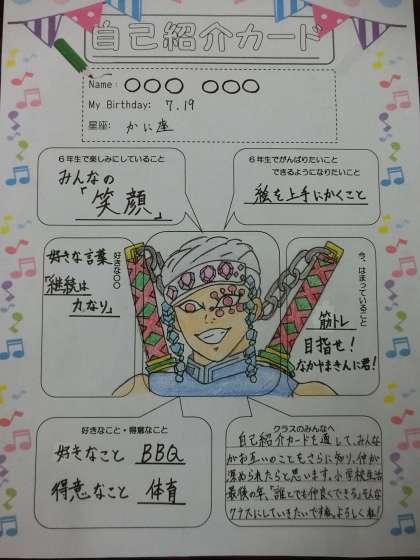 自己紹介カード
Name: ○○○ ○○○
My Birthday: 7.19
星座: かに座
6年生で楽しみにしていること
みんなの
「笑顔」
6年生でがんばりたいこと
できるようになりたいこと
絵を上手にかくこと
好きな○○
好きな言葉
「継続は
力なり」
今、はまっていること
筋トレ
目指せ!
なかやまきんに君!
好きなこと・得意なこと
好きなこと BBQ
得意なこと 体育
クラスのみんなへ
自己紹介カードを通して、みんな
がお互いのことをさらに知り、仲が
深められたらと思います。小学校生活
最後の年、「誰とでも仲良くできる」そんな
クラスにしていきたいですね。よろしくね!